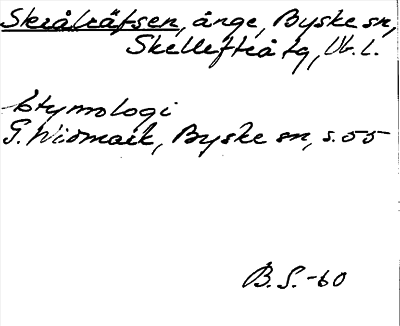 Skrålråfsen, änge, Byske sn,
Skellefteå tg, Vb. l.
Etymologi
G. Widmark, Byske sn, s. 55
B.S.-60